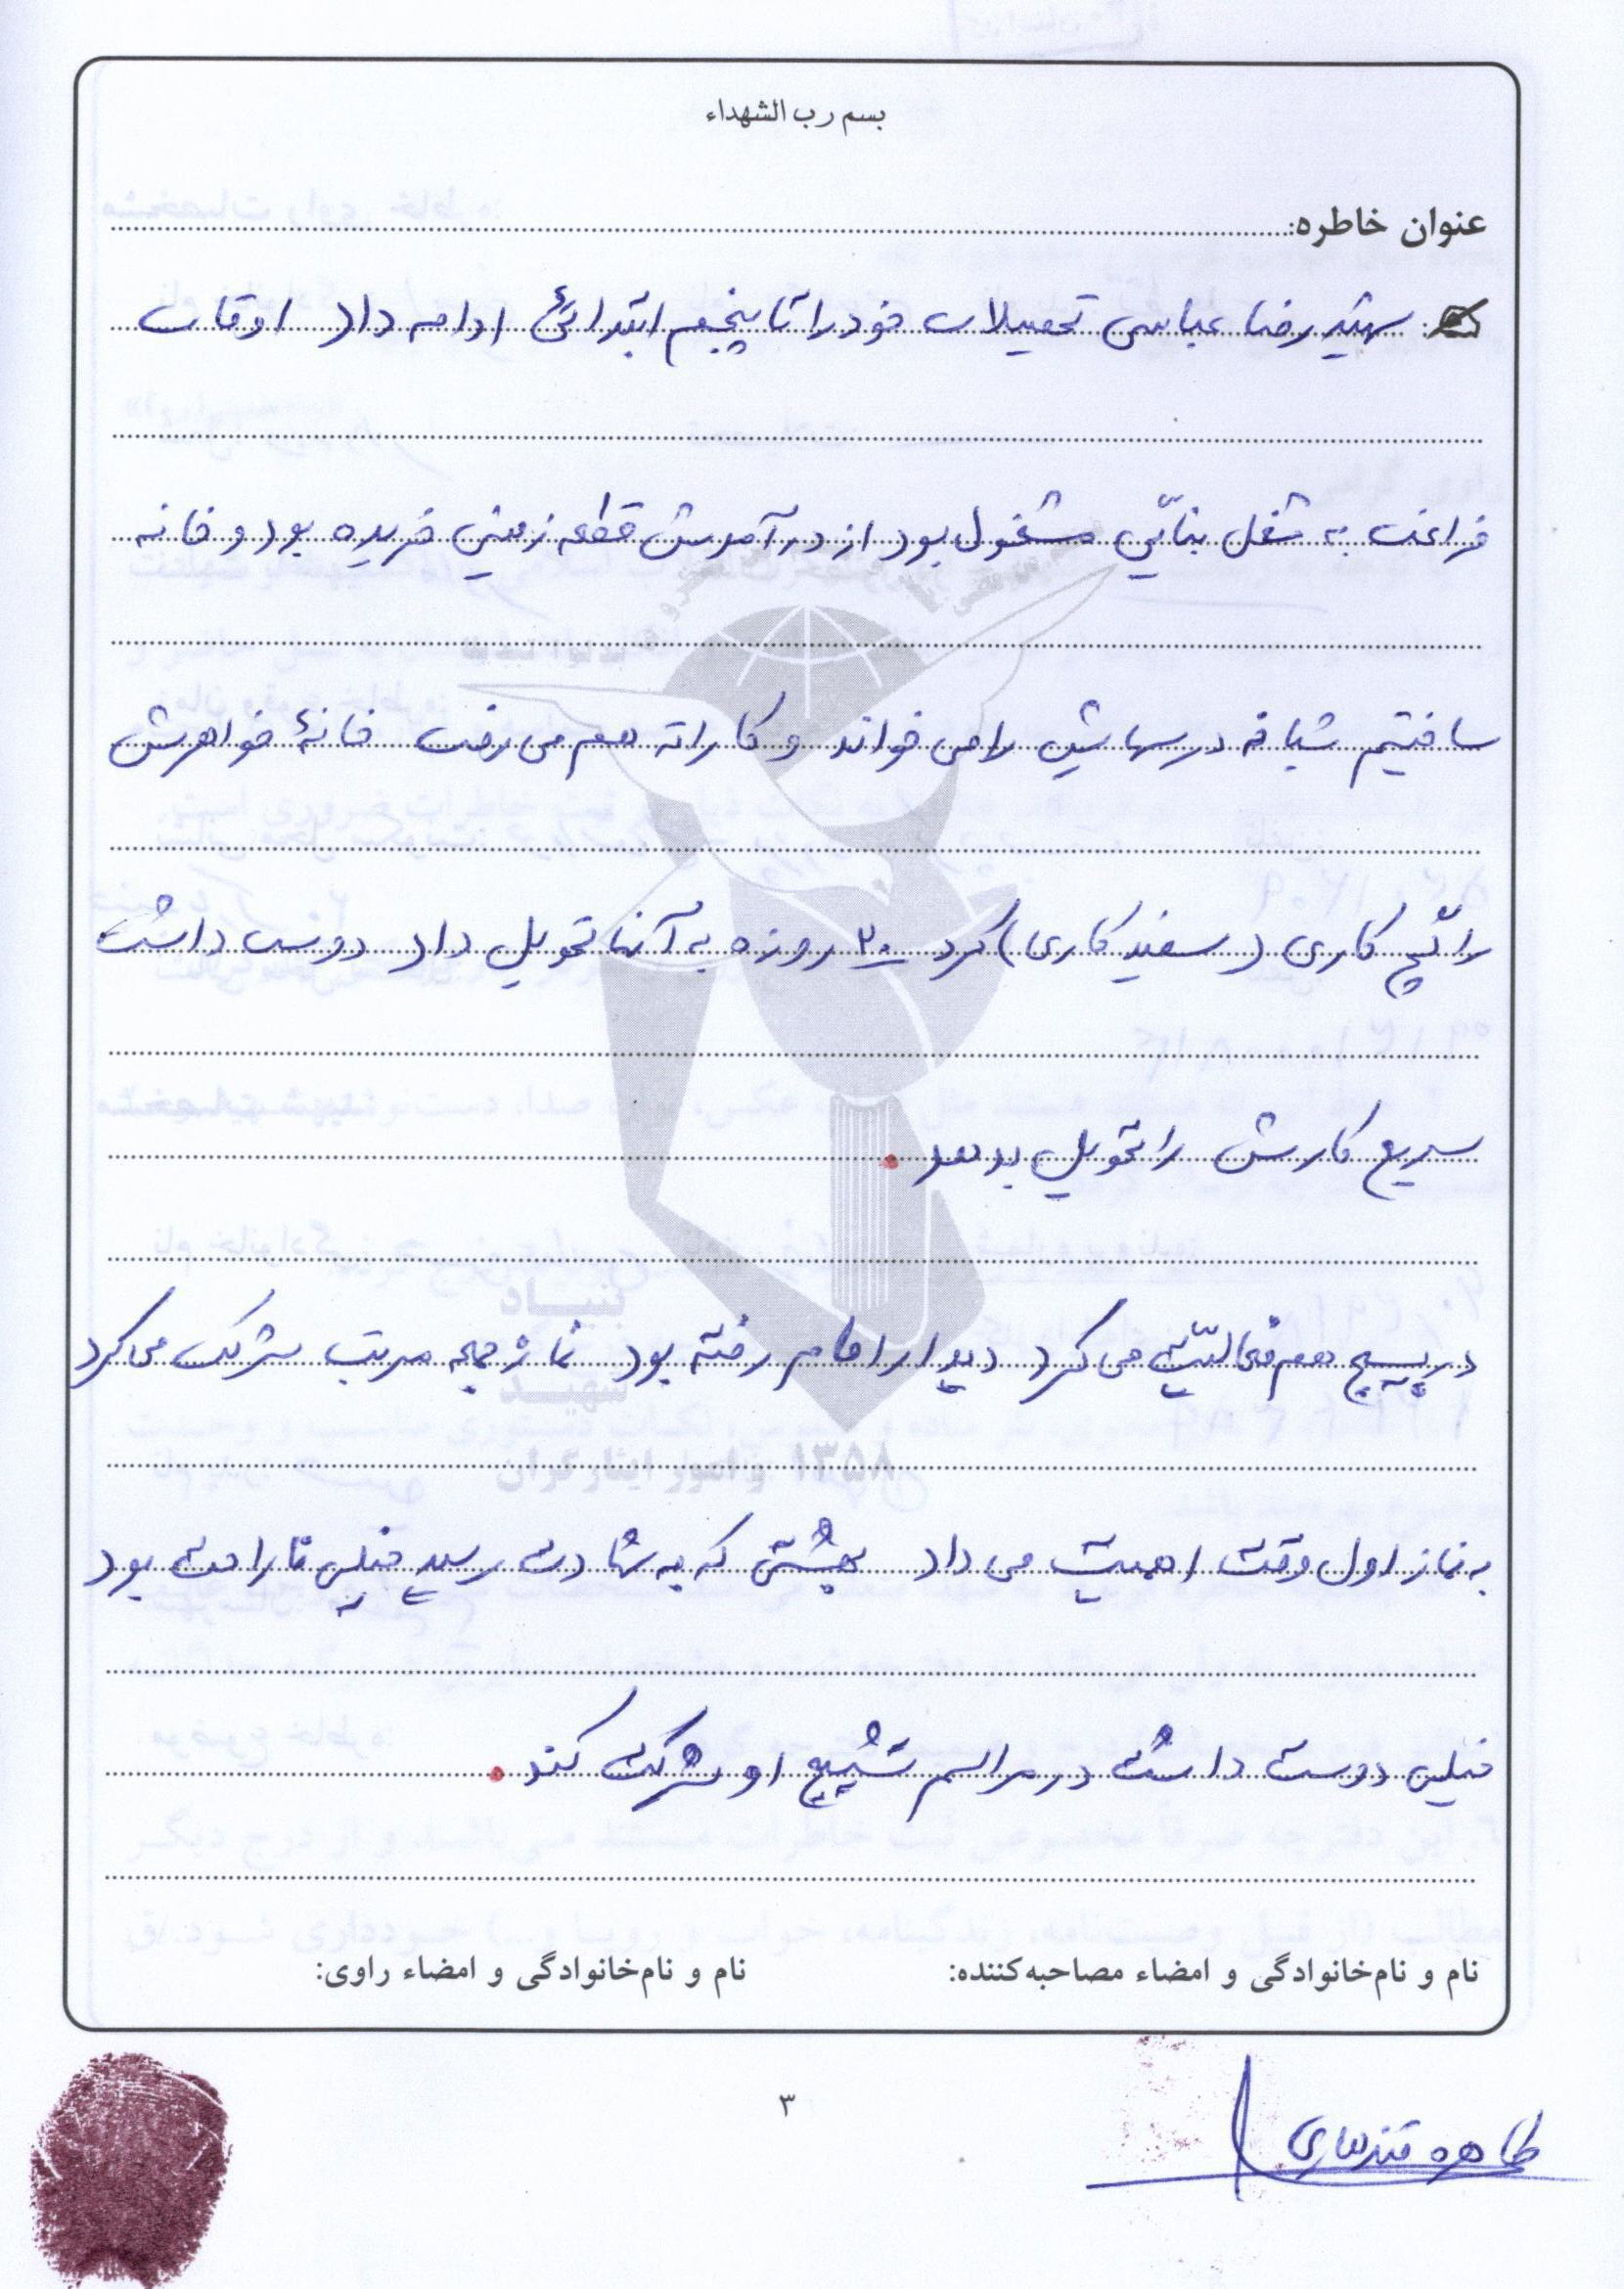 بسم رب الشهداء
عنوان خاطره:
شهید رضا عباسی تحصیلات خود را تا پنجم ابتدائی ادامه داد اوقات
فراغت به شغل بنائی مشغول بود از درآمدش قطعه زمینی خریده بود و خانه
ساختیم شبانه درسهایش را می خواند و کاراته هم می رفت خانهٔ خواهرش
را گچ کاری (سفید کاری) کرد ۲۰ روزه به آنها تحویل داد دوست داشت
سریع کارش را تحویل بدهد.
در بسیج هم فعالیت می کرد دیدار امام رفته بود نماز جمعه مرتب شرکت می کرد
به نماز اول وقت اهمیت می داد بهشتی که به شهادت رسید خیلی ناراحت بود
خیلی دوست داشت در مراسم تشییع او شرکت کند.
بنیاد
شهید
و امور ایثارگران ۱۳۵۸
نام و نام‌خانوادگی و امضاء مصاحبه‌کننده: نام و نام‌خانوادگی و امضاء راوی:
۳
طاهره قندهاری